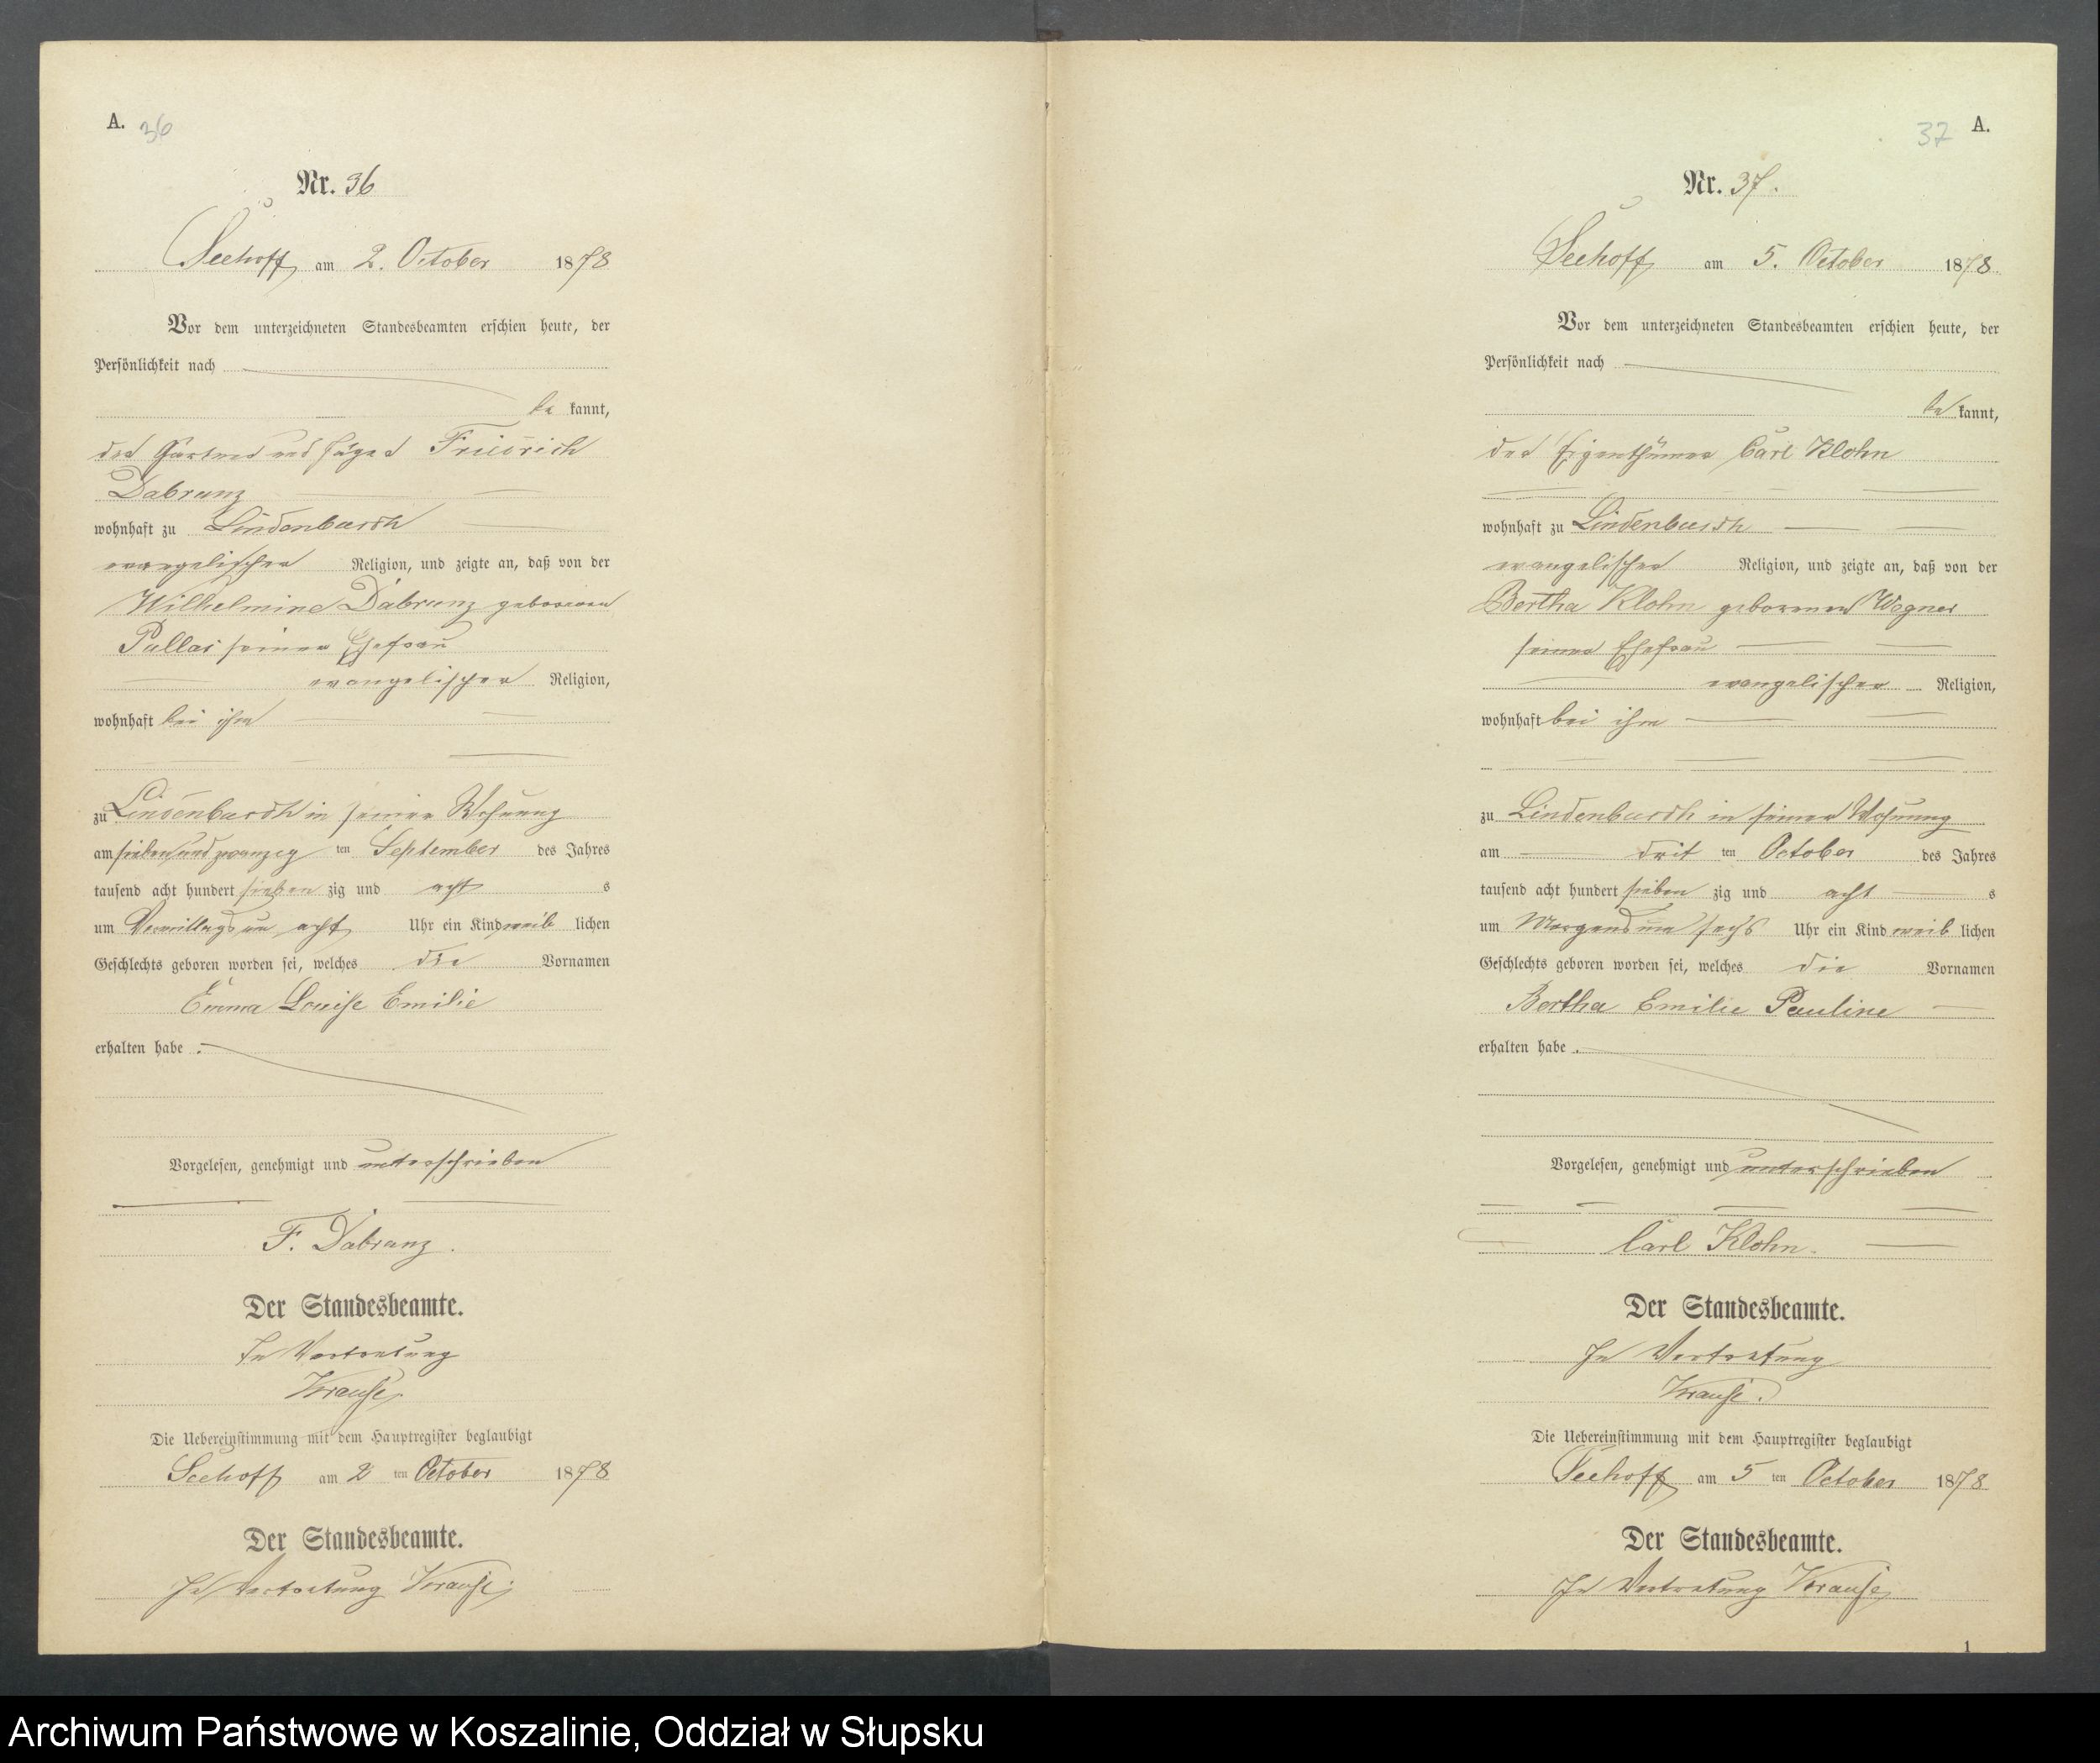 A. 36
Nr. 36
Seehoff am 2. October 1878
Vor dem unterzeichneten Standesbeamten erschien heute, der
Persönlichkeit nach
be kannt,
der Gärtner und Jäger Friedrich
Dabrunz
wohnhaft zu Lindenbusch
evangelischer Religion, und zeigte an, daß von der
Wilhelmine Dabrunz geborenen
Pallas seiner Ehefrau
evangelischer Religion,
wohnhaft bei ihm
zu Lindenbusch in seiner Wohnung
am sieben und zwanzig ten September des Jahres
tausend acht hundert sieben zig und acht s
um Vormittags um acht Uhr ein Kind weib lichen
Geschlechts geboren worden sei, welches die Vornamen
Emma Louise Emilie
erhalten habe.
Vorgelesen, genehmigt und unterschrieben
F. Dabrunz.
Der Standesbeamte.
In Vertretung
Krause
Die Uebereinstimmung mit dem Hauptregister beglaubigt
Seehoff am 2 ten October 1878
Der Standesbeamte.
In Vertretung Krause.
37 A.
Nr. 37.
Seehoff am 5. October 1878.
Vor dem unterzeichneten Standesbeamten erschien heute, der
Persönlichkeit nach
be kannt,
der Eigenthümer Carl Klohn
wohnhaft zu Lindenbusch
evangelischer Religion, und zeigte an, daß von der
Bertha Klohn geborenen Wegner
seiner Ehefrau
evangelischer Religion,
wohnhaft bei ihm
zu Lindenbusch in seiner Wohnung
am drit ten October des Jahres
tausend acht hundert sieben zig und acht s
um Morgens um sechs Uhr ein Kind weib lichen
Geschlechts geboren worden sei, welches die Vornamen
Bertha Emilie Pauline
erhalten habe.
Vorgelesen, genehmigt und unterschrieben
Carl Klohn.
Der Standesbeamte.
In Vertretung
Krause.
Die Uebereinstimmung mit dem Hauptregister beglaubigt
Seehoff am 5 ten October 1878
Der Standesbeamte.
In Vertretung Krause
1
Archiwum Państwowe w Koszalinie, Oddział w Słupsku